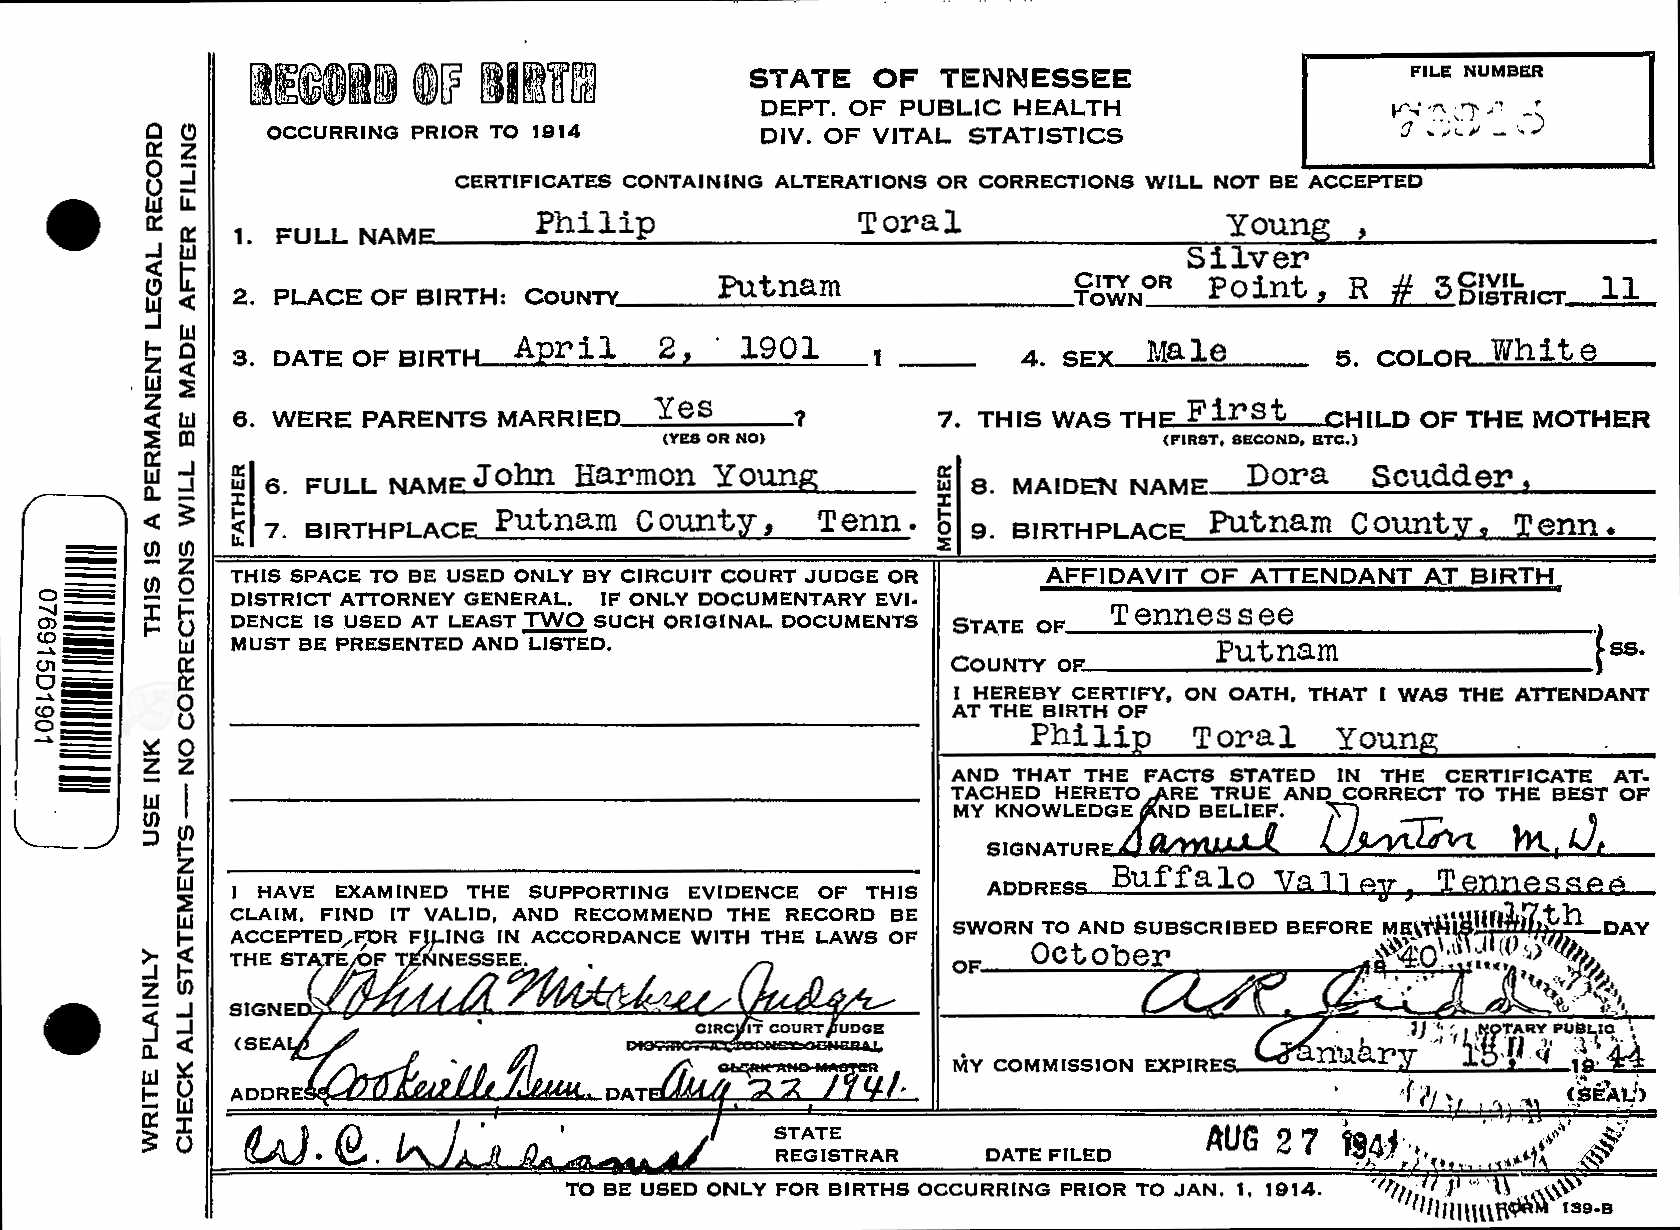 RECORD OF BIRTH
OCCURRING PRIOR TO 1914
STATE OF TENNESSEE
DEPT. OF PUBLIC HEALTH
DIV. OF VITAL STATISTICS
FILE NUMBER
CERTIFICATES CONTAINING ALTERATIONS OR CORRECTIONS WILL NOT BE ACCEPTED
1. FULL NAME Philip Toral Young ,
2. PLACE OF BIRTH: COUNTY Putnam CITY OR TOWN Silver Point, R # 3 CIVIL DISTRICT 11
3. DATE OF BIRTH April 2, 1901 1 4. SEX Male 5. COLOR White
6. WERE PARENTS MARRIED Yes ? 7. THIS WAS THE First CHILD OF THE MOTHER
(YES OR NO) (FIRST, SECOND, ETC.)
FATHER
6. FULL NAME John Harmon Young
7. BIRTHPLACE Putnam County, Tenn.
MOTHER
8. MAIDEN NAME Dora Scudder,
9. BIRTHPLACE Putnam County, Tenn.
THIS SPACE TO BE USED ONLY BY CIRCUIT COURT JUDGE OR
DISTRICT ATTORNEY GENERAL. IF ONLY DOCUMENTARY EVI-
DENCE IS USED AT LEAST TWO SUCH ORIGINAL DOCUMENTS
MUST BE PRESENTED AND LISTED.
I HAVE EXAMINED THE SUPPORTING EVIDENCE OF THIS
CLAIM, FIND IT VALID, AND RECOMMEND THE RECORD BE
ACCEPTED FOR FILING IN ACCORDANCE WITH THE LAWS OF
THE STATE OF TENNESSEE.
SIGNED John A Mitchell Judge
CIRCUIT COURT JUDGE
(SEAL) DISTRICT ATTORNEY GENERAL
CLERK AND MASTER
ADDRESS Cookeville Tenn. DATE Aug 22 1941.
AFFIDAVIT OF ATTENDANT AT BIRTH
STATE OF Tennessee
COUNTY OF Putnam } SS.
I HEREBY CERTIFY, ON OATH, THAT I WAS THE ATTENDANT
AT THE BIRTH OF
Philip Toral Young
AND THAT THE FACTS STATED IN THE CERTIFICATE AT-
TACHED HERETO ARE TRUE AND CORRECT TO THE BEST OF
MY KNOWLEDGE AND BELIEF.
SIGNATURE Samuel Denton M.D.
ADDRESS Buffalo Valley, Tennessee
SWORN TO AND SUBSCRIBED BEFORE ME THIS 17th DAY
OF October 19 40
A.R. Judd
NOTARY PUBLIC
MY COMMISSION EXPIRES January 15, 19 44
(SEAL)
W. C. Williams STATE REGISTRAR DATE FILED AUG 27 1941
TO BE USED ONLY FOR BIRTHS OCCURRING PRIOR TO JAN. 1, 1914.
FORM 139-B
WRITE PLAINLY USE INK THIS IS A PERMANENT LEGAL RECORD
CHECK ALL STATEMENTS — NO CORRECTIONS WILL BE MADE AFTER FILING
076915D1901